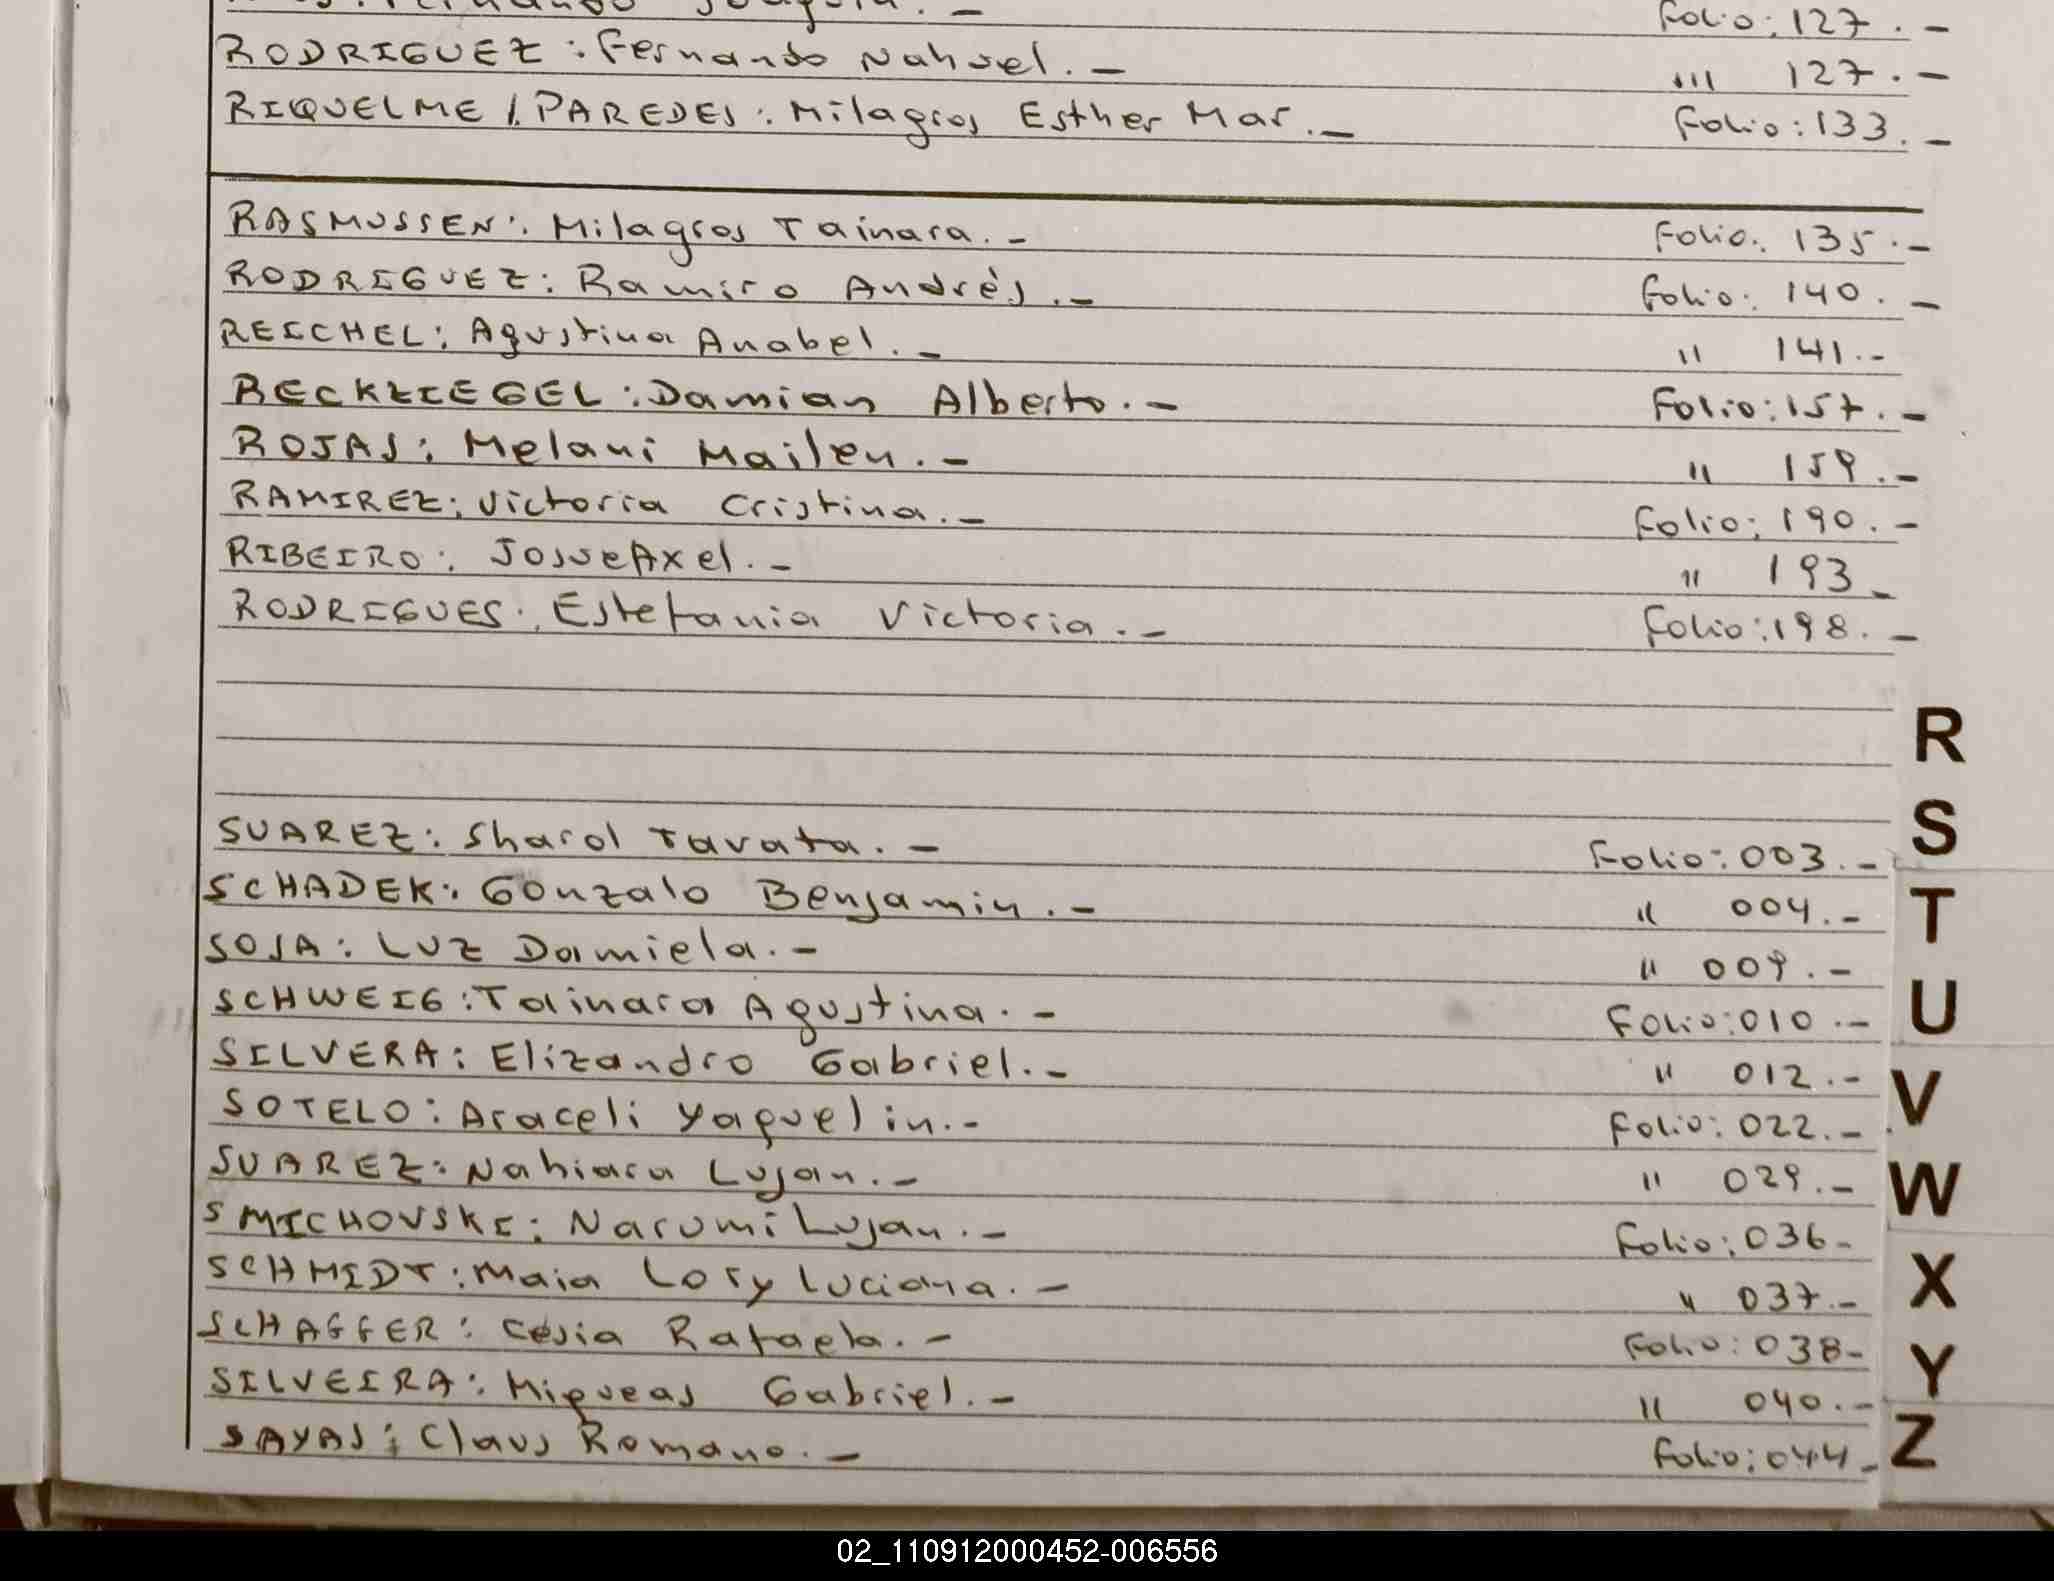 Joaquin. - Folio: 127. -
RODRIGUEZ: Fernando Nahuel. - ,,, 127. -
RIQUELME / PAREDES: Milagros Esther Mar. - Folio: 133. -
RASMUSSEN: Milagros Tainara. - Folio: 135. -
RODRIGUEZ: Ramiro Andrès. - Folio: 140. -
REICHEL: Agustina Anabel. - " 141. -
RECKZIEGEL: Damian Alberto. - Folio: 157. -
ROJAS: Melani Mailen. - " 159. -
RAMIREZ: Victoria Cristina. - Folio: 190. -
RIBEIRO: Josue Axel. - " 193 -
RODRIGUES: Estefania Victoria. - Folio: 198. -
R
S
SUAREZ: Sharol Tavata. - Folio: 003. -
SCHADEK: Gonzalo Benjamin. - " 004. -
T
SOJA: Luz Damiela. - " 009. -
SCHWEIG: Tainara Agustina. - Folio: 010. -
U
SILVERA: Elizandro Gabriel. - " 012. -
V
SOTELO: Araceli Yaquelin. - Folio: 022. -
SUAREZ: Nahiara Lujan. - " 029. -
W
SMICHOVSKI: Narumi Lujan. - Folio: 036 -
SCHMIDT: Maia Lory Luciana. - " 037. -
X
SCHAFFER: Cesia Rafaela. - Folio: 038 -
Y
SILVEIRA: Miqueas Gabriel. - " 040. -
SAYAS: Claus Romano. - Folio: 044 -
Z
02_110912000452-006556